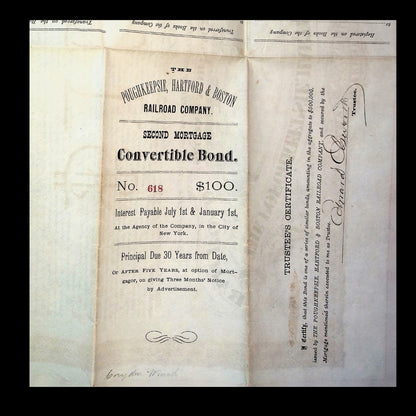 Transferred on the Books of the Company
Registered on the Books of the Company
THE
POUGHKEEPSIE, HARTFORD & BOSTON
RAILROAD COMPANY.
SECOND MORTGAGE
Convertible Bond.
No. 618 $100.
Interest Payable July 1st & January 1st,
At the Agency of the Company, in the City of
New York.
Principal Due 30 Years from Date,
Or AFTER FIVE YEARS, at option of Mort-
gagor, on giving Three Months' Notice
by Advertisement.
TRUSTEE'S CERTIFICATE.
I Certify, that this Bond is one of a series of similar bonds, amounting in the aggregate to $500,000,
issued by THE POUGHKEEPSIE, HARTFORD & BOSTON RAILROAD COMPANY, and secured by the
Mortgage mentioned therein executed to me as Trustee.
Trustee.